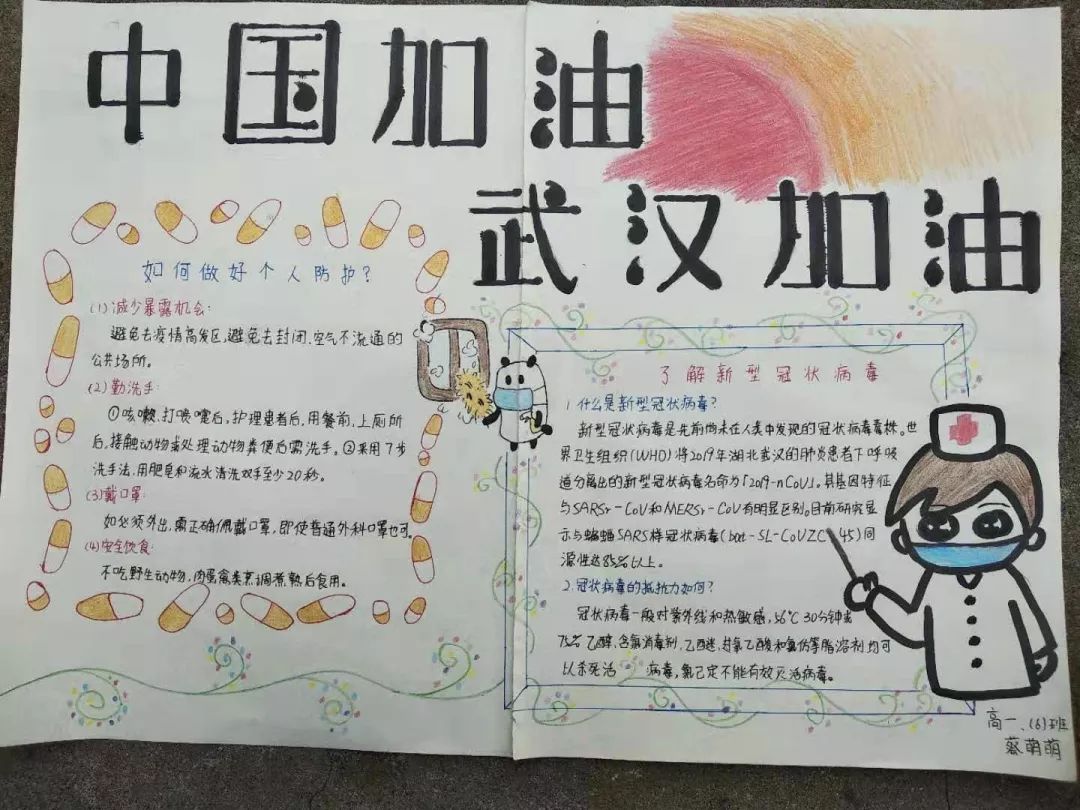 中国加油
武汉加油
如何做好个人防护?
(1)减少暴露机会:
避免去疫情高发区,避免去封闭、空气不流通的
公共场所。
(2)勤洗手:
①咳嗽、打喷嚏后,护理患者后,用餐前,上厕所
后,接触动物或处理动物粪便后需洗手。②采用7步
洗手法,用肥皂和流水清洗双手至少20秒。
(3)戴口罩:
如必须外出,需正确佩戴口罩,即使普通外科口罩也可。
(4)安全饮食:
不吃野生动物,肉蛋禽类烹调煮熟后食用。
了解新型冠状病毒
1.什么是新型冠状病毒?
新型冠状病毒是先前尚未在人类中发现的冠状病毒毒株。世
界卫生组织(WHO)将2019年湖北武汉的肺炎患者下呼吸
道分离出的新型冠状病毒名命为「2019-nCoV」。其基因特征
与SARSr-CoV和MERSr-CoV有明显区别。目前研究显
示与蝙蝠SARS样冠状病毒(bat-SL-CoVZC45)同
源性达85%以上。
2.冠状病毒的抵抗力如何?
冠状病毒一般对紫外线和热敏感,56℃30分钟或
75%乙醇,含氯消毒剂,乙酉迷,过氧乙酸和氯仿等脂溶剂均可
以杀死活 病毒,氯己定不能有效灭活病毒。
高一、(6)班
蔡萌萌